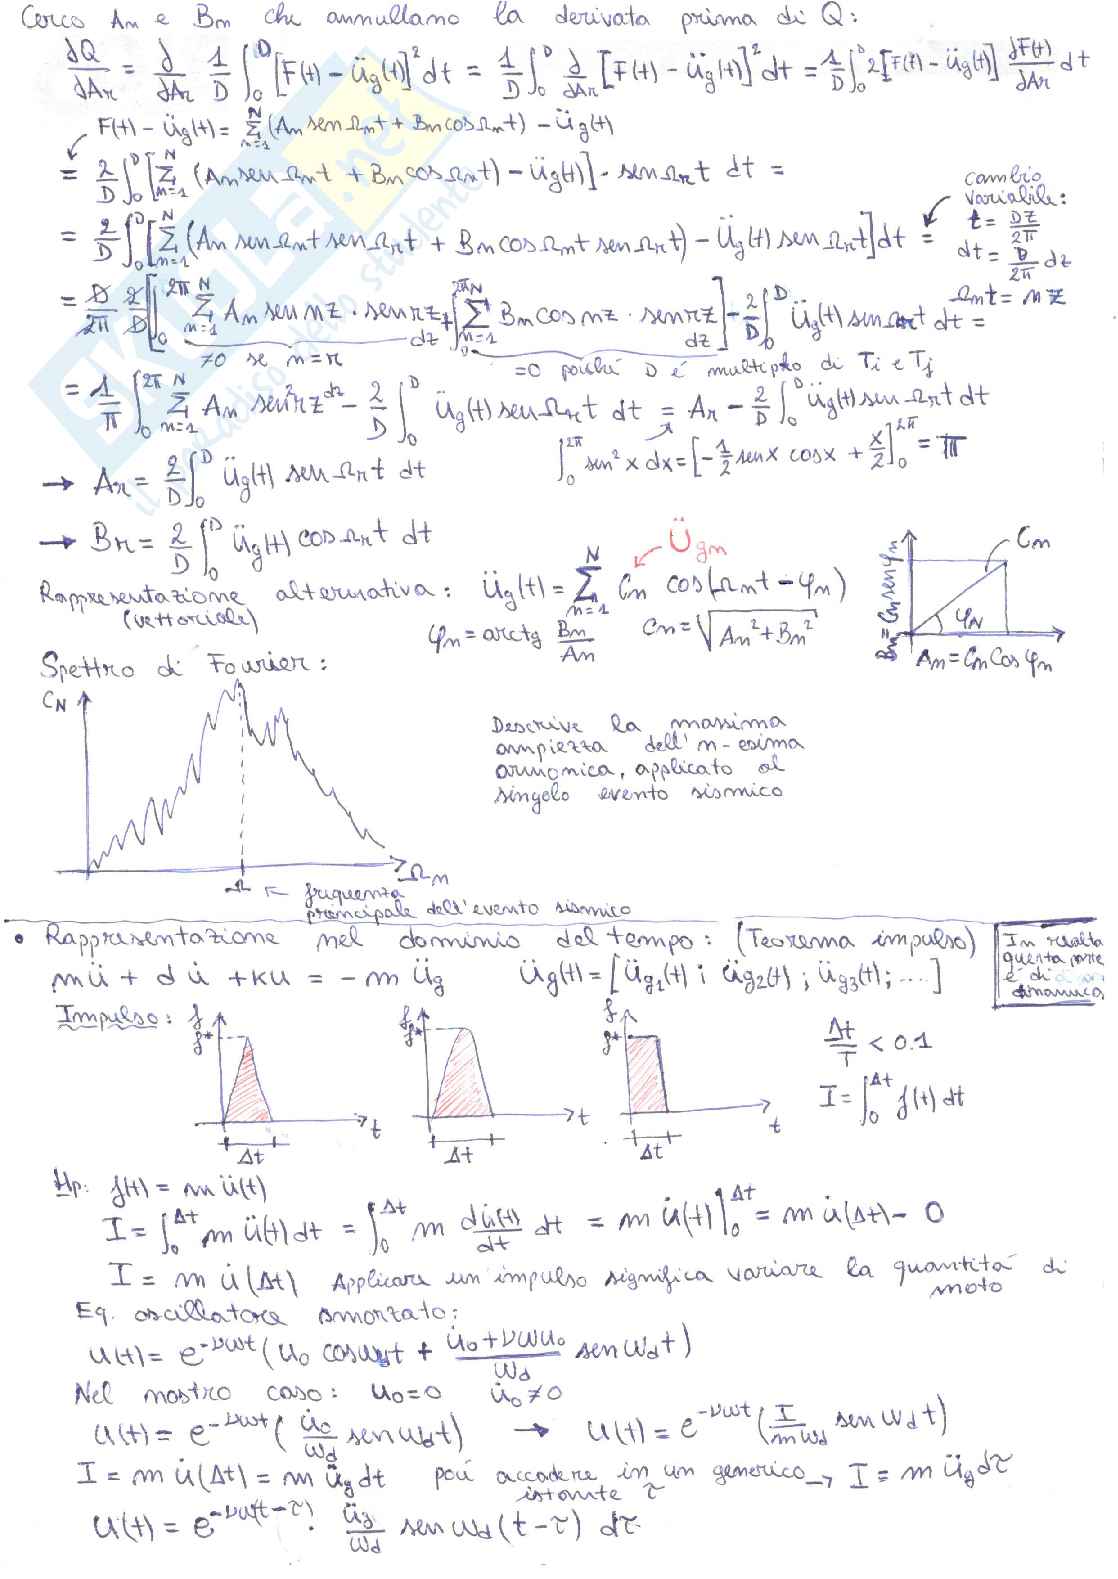 Cerco An e Bn che annullano la derivata prima di Q:
∂Q/∂Ar = ∂/∂Ar 1/D ∫₀ᴰ [F(t) - üg(t)]² dt = 1/D ∫₀ᴰ ∂/∂Ar [F(t) - üg(t)]² dt = 1/D ∫₀ᴰ 2[F(t) - üg(t)] ∂F(t)/∂Ar dt
F(t) - üg(t) = Σₙ₌₁ᴺ (An sen Ωn t + Bn cos Ωn t) - üg(t)
= 2/D ∫₀ᴰ [Σₙ₌₁ᴺ (An sen Ωn t + Bn cos Ωn t) - üg(t)] · sen Ωr t dt =
cambio
variabile:
t = DZ/2π
dt = D/2π dz
Ωn t = nz
= 2/D ∫₀ᴰ [Σₙ₌₁ᴺ (An sen Ωn t sen Ωr t + Bn cos Ωn t sen Ωr t) - üg(t) sen Ωr t] dt =
= D/2π 2/D [∫₀²π Σₙ₌₁ᴺ An sen nz · sen rz dz + ∫₀²π Σₙ₌₁ᴺ Bn cos nz · sen rz dz] - 2/D ∫₀ᴰ üg(t) sen Ωr t dt =
≠0 se n=r
=0 poiché D é multiplo di Ti e Tj
= 1/π ∫₀²π Σₙ₌₁ᴺ An sen² rz dz - 2/D ∫₀ᴰ üg(t) sen Ωr t dt = Ar - 2/D ∫₀ᴰ üg(t) sen Ωr t dt
∫₀²π sen² x dx = [-1/2 sen x cos x + x/2]₀²π = π
→ Ar = 2/D ∫₀ᴰ üg(t) sen Ωr t dt
→ Br = 2/D ∫₀ᴰ üg(t) cos Ωr t dt
Ügn
Rappresentazione alternativa: üg(t) = Σₙ₌₁ᴺ Cn cos(Ωn t - φn)
(vettoriale)
φn = arctg Bn/An Cn = √(An² + Bn²)
Bn = Cn sen φn
Cn
φN
An = Cn Cos φn
Spettro di Fourier:
CN
Descrive la massima
ampiezza dell'n-esima
armonica, applicato al
singolo evento sismico
Ωn
Ω ← frequenza
principale dell'evento sismico
• Rappresentazione nel dominio del tempo: (Teorema impulso)
In realtà
questa parte
é di
dinamica
mü + d u̇ + ku = -m üg üg(t) = [üg1(t) ; üg2(t) ; üg3(t) ; ....]
Impulso:
f f* t Δt
f f* t Δt
f f* t Δt
Δt/T < 0.1
I = ∫₀^Δt f(t) dt
Hp: f(t) = m ü(t)
I = ∫₀^Δt m ü(t) dt = ∫₀^Δt m du̇(t)/dt dt = m u̇(t)]₀^Δt = m u̇(Δt) - 0
I = m u̇(Δt) Applicare un impulso significa variare la quantità di
moto
Eq. oscillatore smorzato:
u(t) = e^-νωt (u0 cos ωd t + (u̇0 + νωu0)/ωd sen ωd t)
Nel nostro caso: u0 = 0 u̇0 ≠ 0
u(t) = e^-νωt (u̇0/ωd sen ωd t) → u(t) = e^-νωt (I/mωd sen ωd t)
I = m u̇(Δt) = m üg dt può accadere in un generico → I = m üg dτ
istante τ
u(t) = e^-νω(t-τ) · üg/ωd sen ωd (t-τ) dτ
SKUOLA.net